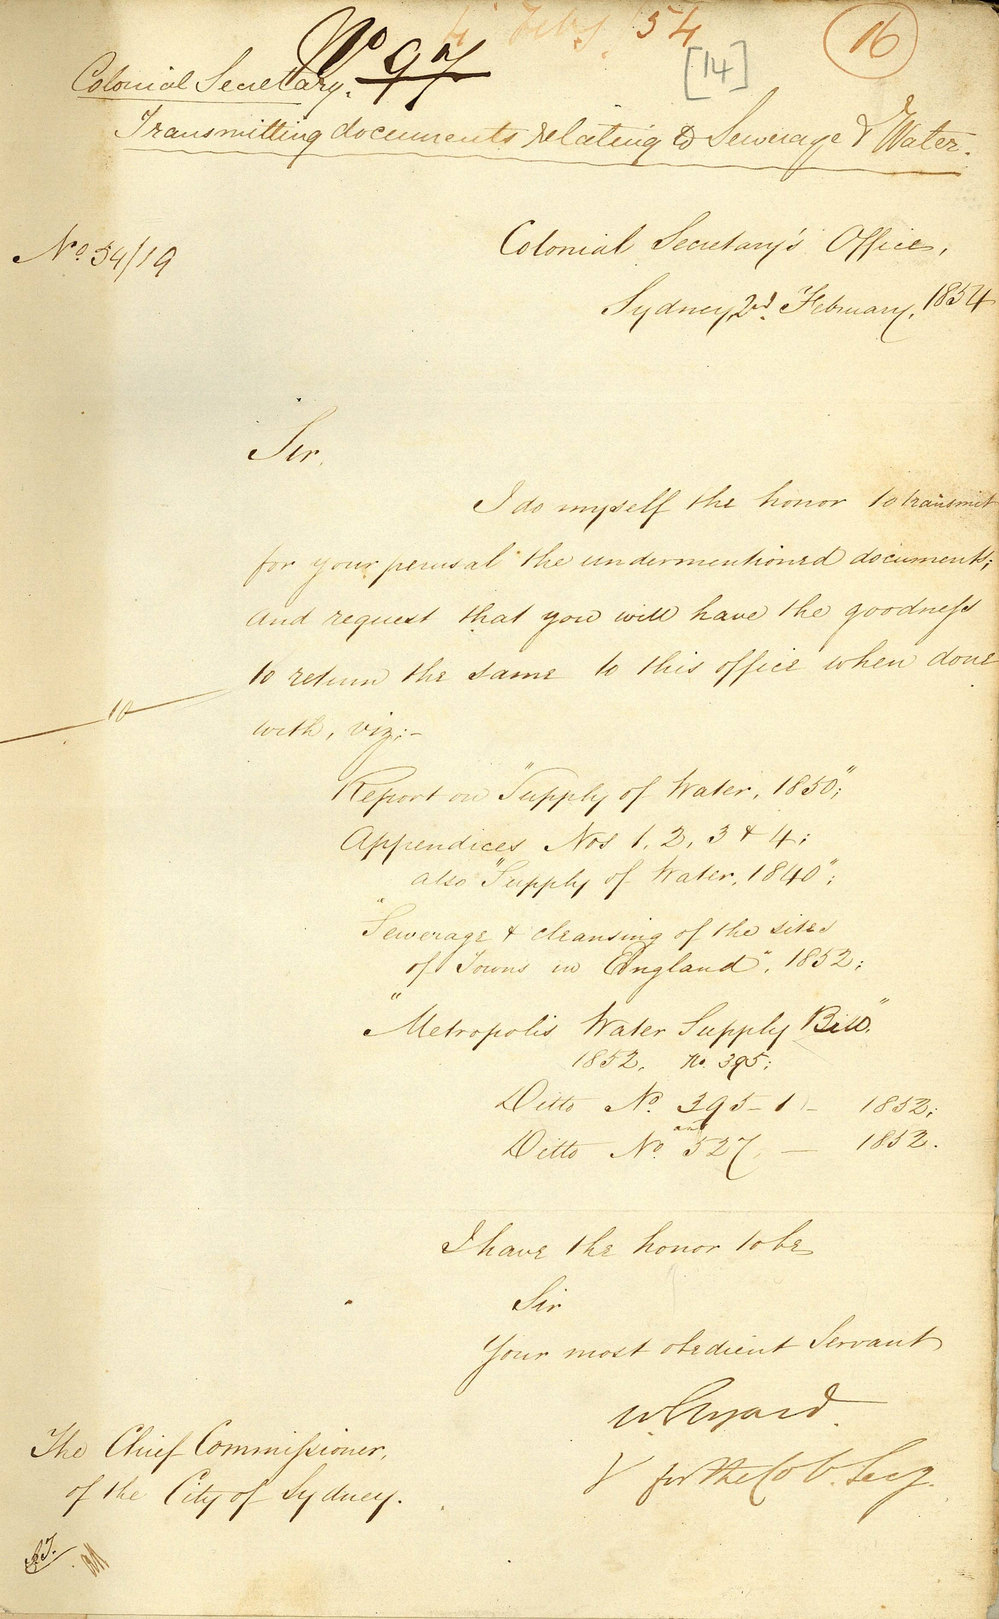 No 97
4 Feby. 54
16
[14]
Colonial Secretary.
Transmitting documents relating to Sewerage & Water.
No 54/19
Colonial Secretary's Office,
Sydney, 2nd. February, 1854
Sir,
I do myself the honor to transmit
for your perusal the undermentioned documents;
and request that you will have the goodness
to return the same to this office when done
10
with, viz:-
Report on "Supply of Water, 1850";
Appendices Nos 1, 2, 3 & 4;
also "Supply of Water, 1840";
"Sewerage & cleansing of the sites
of Towns in England", 1852;
"Metropolis Water Supply Bill"
1852, No. 395;
Ditto No. 395-1 - 1852;
and
Ditto No. 527 — 1852.
I have the honor to be
Sir
Your most obedient Servant
W. Elyard.
for the Col. Secy.
The Chief Commissioner,
of the City of Sydney.